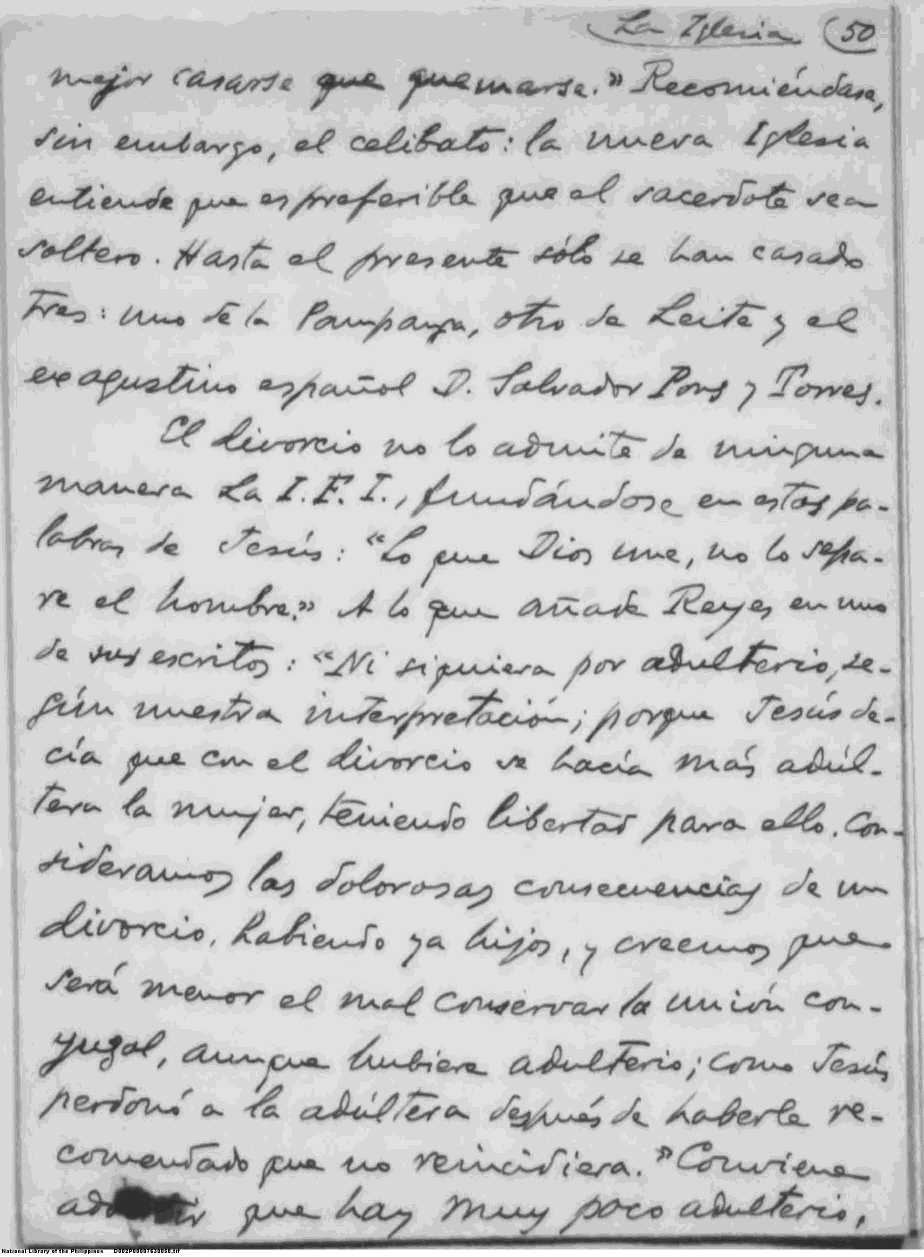 La Iglesia (50
mejor casarse que quemarse." Recomiéndase,
sin embargo, el celibato: la nueva Iglesia
entiende que es preferible que el sacerdote sea
soltero. Hasta el presente sólo se han casado
tres: uno de la Pampanga, otro de Leite y el
exagustino español D. Salvador Pons y Torres.
El divorcio no lo admite de ninguna
manera La I. F. I., fundándose en estas pa-
labras de Jesús: "Lo que Dios une, no lo sepa-
re el hombre." A lo que añade Reyes en uno
de sus escritos: "Ni siquiera por adulterio, se-
gún nuestra interpretación; porque Jesús de-
cía que con el divorcio se hacía más adúl-
tera la mujer, teniendo libertad para ello. Con-
sideramos las dolorosas consecuencias de un
divorcio, habiendo ya hijos, y creemos que
será menor el mal conservar la unión con-
yugal, aunque hubiera adulterio; como Jesús
perdonó a la adúltera después de haberle re-
comendado que no reincidiera." Conviene
que hay muy poco adulterio,
National Library of the Philippines